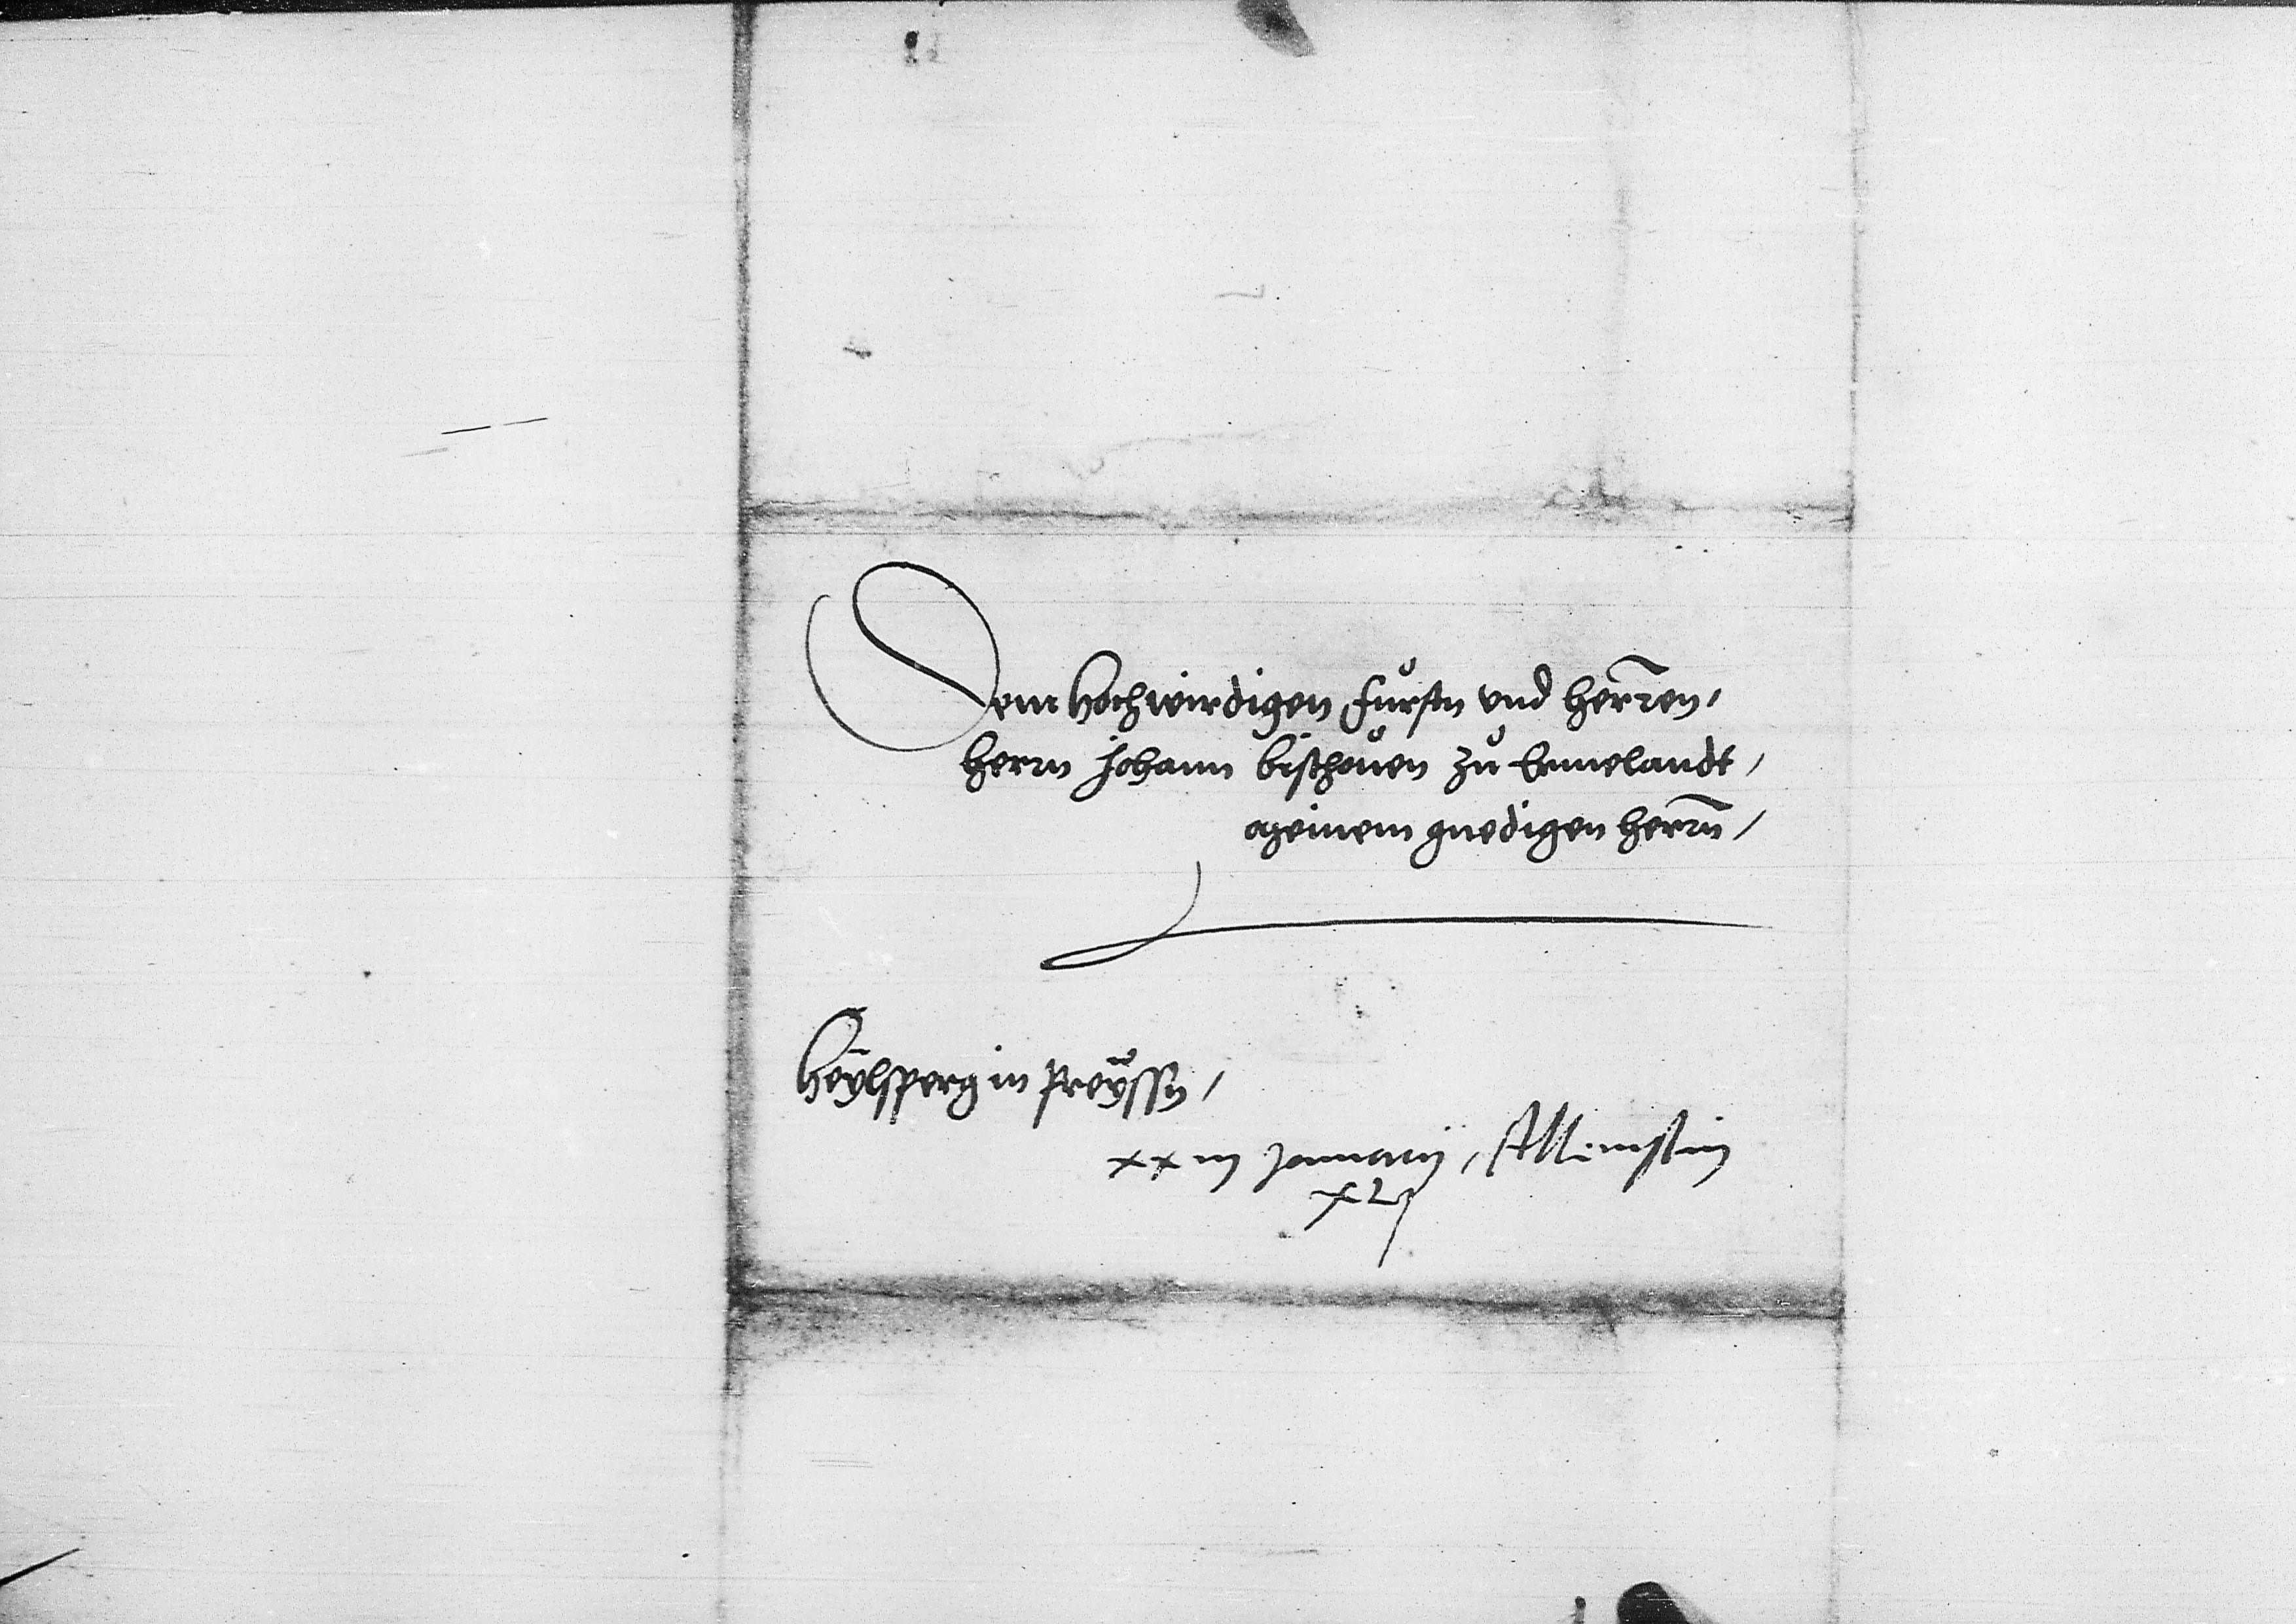 Dem Hochwirdigen Fursten und herren,
herrn Johann bischouen zu Ermelandt,
meinem gnedigen herrn,
Heylsperg in Preyssen,
xxiij Januarij, Allenstein
xlj